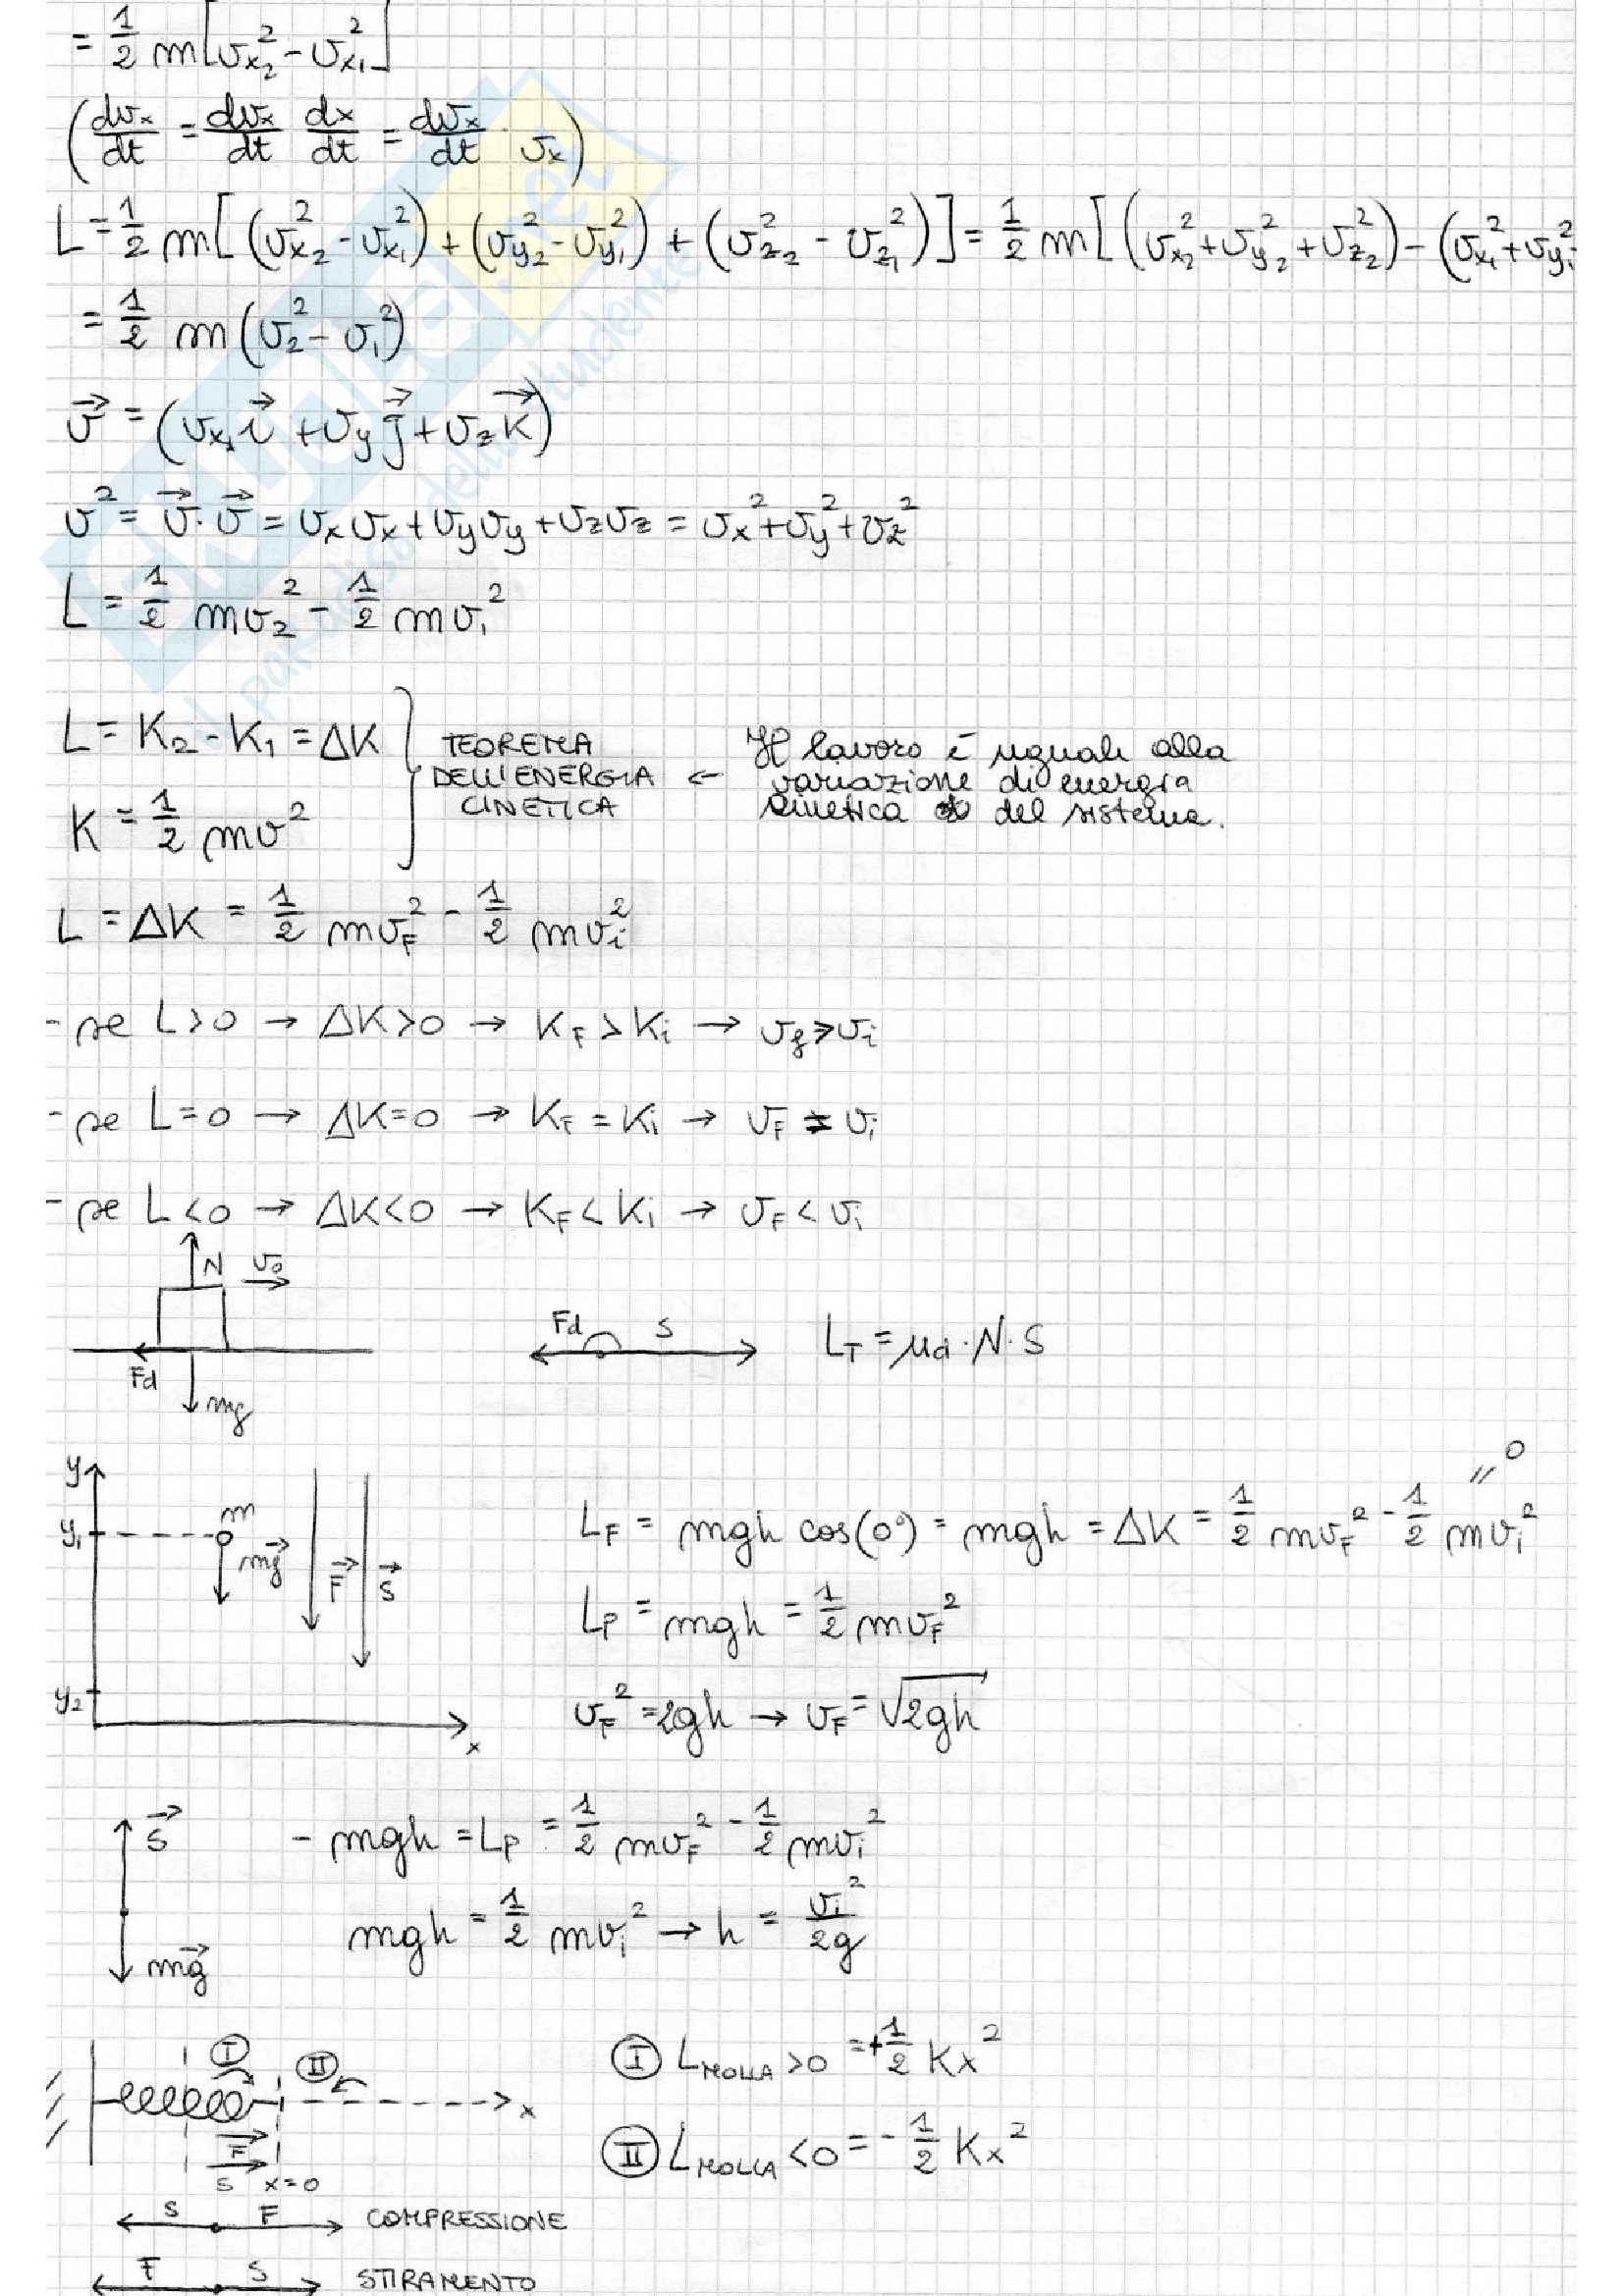 = 1/2 m[v_x₂² - v_x₁²]
(dv_x/dt = dv_x/dt dx/dt = dv_x/dt · v_x)
L = 1/2 m[(v_x₂² - v_x₁²) + (v_y₂² - v_y₁²) + (v_z₂² - v_z₁²)] = 1/2 m[(v_x₂² + v_y₂² + v_z₂²) - (v_x₁² + v_y₁²
= 1/2 m(v₂² - v₁²)
v⃗ = (v_x i⃗ + v_y j⃗ + v_z k⃗)
v² = v⃗ · v⃗ = v_x v_x + v_y v_y + v_z v_z = v_x² + v_y² + v_z²
L = 1/2 mv₂² - 1/2 mv₁²
L = K₂ - K₁ = ΔK
K = 1/2 mv²
TEOREMA
DELL'ENERGIA
CINETICA
←
Il lavoro è uguale alla
variazione di energia
cinetica del sistema.
L = ΔK = 1/2 mv_F² - 1/2 mv_i²
- se L>0 → ΔK>0 → K_F > K_i → v_f > v_i
- se L=0 → ΔK=0 → K_F = K_i → v_F = v_i
- se L<0 → ΔK<0 → K_F < K_i → v_F < v_i
N v₀
Fd
mg
Fd S
L_T = μd · N · S
y
y₁
m
mg⃗
F⃗ S⃗
y₂
x
L_F = mgh cos(0°) = mgh = ΔK = 1/2 mv_F² - 1/2 mv_i² // 0
L_P = mgh = 1/2 mv_F²
v_F² = 2gh → v_F = √2gh
S⃗
mg⃗
- mgh = L_P = 1/2 mv_F² - 1/2 mv_i²
mgh = 1/2 mv_i² → h = v_i²/2g
I II
x
F
S x=0
I L_MOLLA > 0 = +1/2 Kx²
II L_MOLLA < 0 = - 1/2 Kx²
S F COMPRESSIONE
F S STIRAMENTO